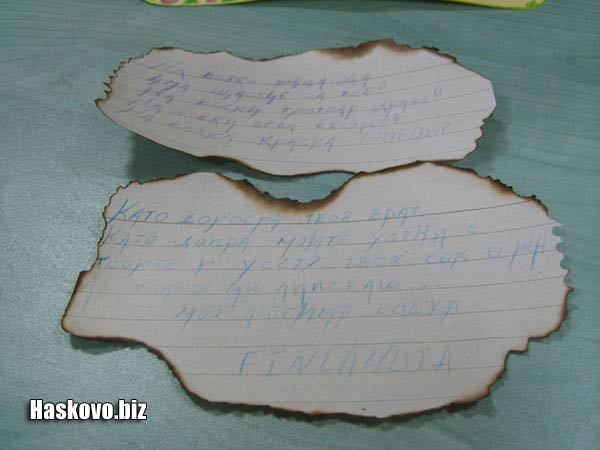 На всяка улица да
има щастие за теб!
На всеки тротоар здраве!
На всеки ъгъл късмет!
На всяка крачка любов!
Като докосна твоя врат,
Като допра моите устни с
твоите и усетя твоя сок в мен
Ах колко ми липсваш...
моя любима водка
FINLANDIA
Haskovo.biz